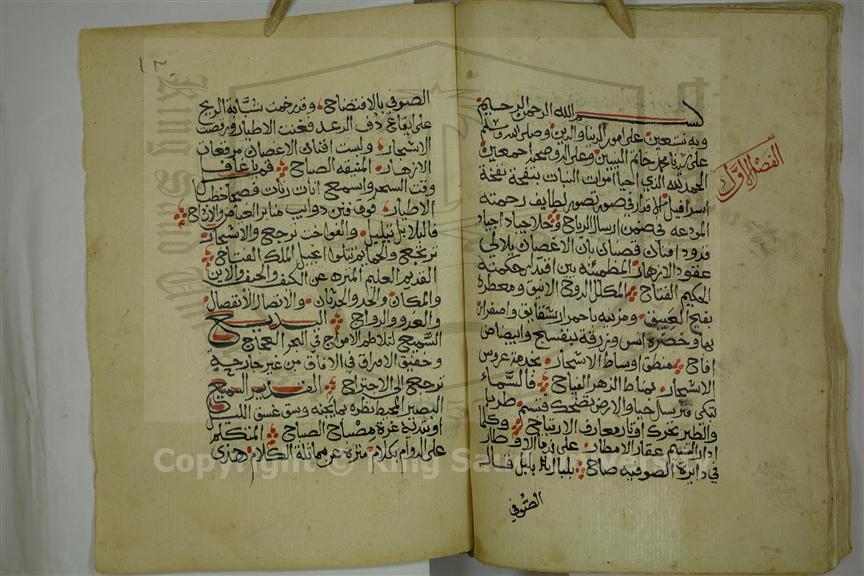 الفصل الاول
بسم الله الرحمن الرحيم
وبه نستعين على امور الدنيا والدين وصلى الله وسلم
على سيدنا محمد خاتم النبيين وعلى اله وصحبه اجمعين
الحمد لله الذي احيا اموات النبات بنفخة نفخة
اسرافيل الاقدار في صور تصوير لطايف رحمته
المودعه في ضمن ارسال الرياح وحلا جياد اجياد
قدود افنان قضبان بان الاغصان بلالئ
عقود الازهار المطمئنة بين اقتدار حكمته
الحكيم الفتاح المكلل الروض الانيق ومعطره
بفيح العبيق ومزينه باحمرار شقايق واصفرار
بها وخضرة اس وزرقة بنفسج وابيضاض
اقاح منطق اوساط الاشجار بخدمة عروس
الاشجار بمناط الزهر الفياح فالسماء
تبكي فرسل حيا والارض تضحك فتبسم طربا
والطير تحرك اوتار معارف الارتياح وكلما
ادار النسيم عقار الامطار على ندما الاقطار
في دايرة الصوفيه صاح بلبل قال
الصوفي
١٢
الصوفي بالافتضاح وقد زخمت شبابة الريح
على ايقاع دف الرعد فغنت الاطيار ورقصت
الاشجار ولست افنان الاغصان مرقعات
الازهار المتيقه الصباح قم يا غافل
وقت السحر واسمع انات رنات فصحا خطبا
الاطيار فوق فنن دوايب منابر العبا والادواح
فالبلابل تبلبل والفواخت ترجع والاشجار
ترنجح والحمايم تتلوا انجيل الملك الفتاح
القديم العليم المنزه عن الكيف والحيف والاين
والمكان والحد والحدثان والاتصال والانفصال
والغدو والرواح البديع
السميع لتلاطم الامواج في البحر العجاج
وخفيق الاوراق في الافاق من غير جارحة
ترجع الى الاجتراح القدير السميع
البصير المحيط نظره بما يجنه وسق غسق الليل
او تبديه غرة مصباح الصباح المتكلم
على الدوام بكلام منزه عن مماثلة الكلام هدى
Copyright © King Saud University